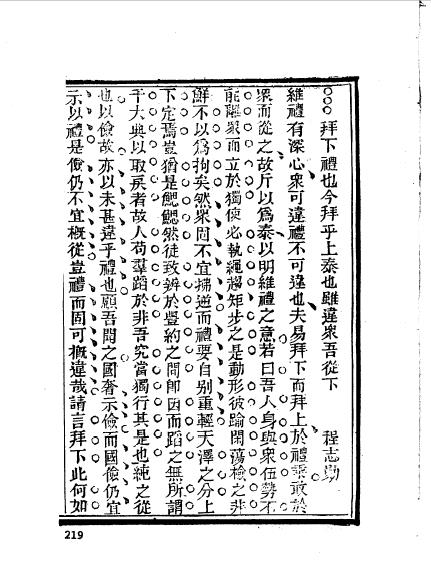 拜下禮也今拜乎上泰也雖違衆吾從下　程志勛
維禮有深心衆可違禮不可違也夫易拜下而拜上於禮褻敢於
衆而從之故斥以爲泰以明維禮之意若曰吾人身與衆伍勢不
能離衆而立於獨使必執繩趨矩步之是動形彼踰閑蕩檢之非
鮮不以爲拘矣然衆固不宜拂逆而禮要自别重輕天澤之分上
下定焉豈猶是鰓鰓然徒致辨於豐約之間卽因而蹈之無所謂
干大典以取戾者故人苟羣蹈於非吾究當獨行其是也純之從
也以儉故亦以未甚違乎禮也願吾聞之國奢示儉而國儉仍宜
示以禮是儉仍不宜概從豈禮而固可概違哉請言拜下此何如
219